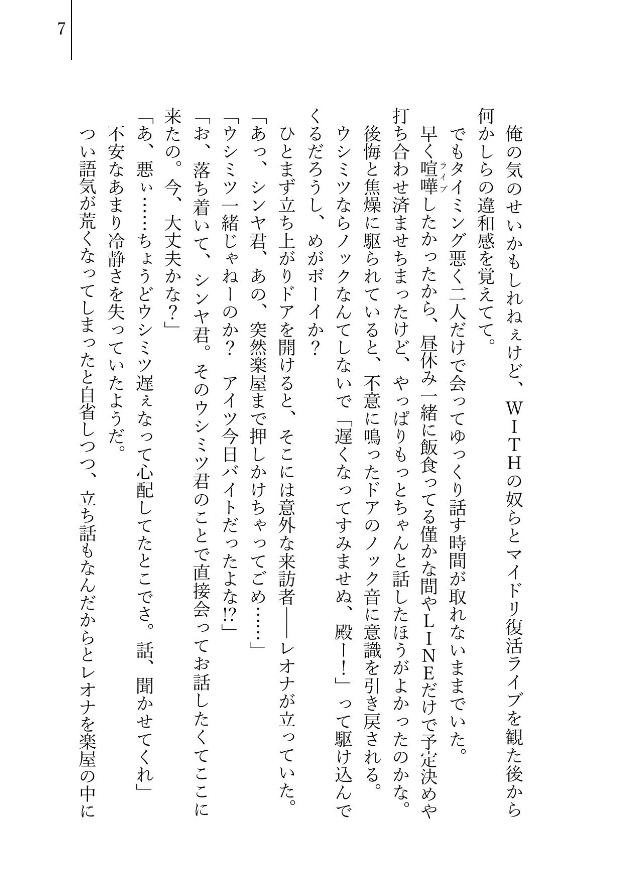 7
俺の気のせいかもしれねぇけど、ＷＩＴＨの奴らとマイドリ復活ライブを観た後から
何かしらの違和感を覚えてて。
でもタイミング悪く二人だけで会ってゆっくり話す時間が取れないままでいた。
早く喧嘩したかったから、昼休み一緒に飯食ってる僅かな間やＬＩＮＥだけで予定決めや
ライブ
打ち合わせ済ませちまったけど、やっぱりもっとちゃんと話したほうがよかったのかな。
後悔と焦燥に駆られていると、不意に鳴ったドアのノック音に意識を引き戻される。
ウシミツならノックなんてしないで「遅くなってすみませぬ、殿ー！」って駆け込んで
くるだろうし、めがボーイか？
ひとまず立ち上がりドアを開けると、そこには意外な来訪者――レオナが立っていた。
「あっ、シンヤ君、あの、突然楽屋まで押しかけちゃってごめ……」
「ウシミツ一緒じゃねーのか？　アイツ今日バイトだったよな!?」
「お、落ち着いて、シンヤ君。そのウシミツ君のことで直接会ってお話したくてここに
来たの。今、大丈夫かな？」
「あ、悪ぃ……ちょうどウシミツ遅ぇなって心配してたとこでさ。話、聞かせてくれ」
不安なあまり冷静さを失っていたようだ。
つい語気が荒くなってしまったと自省しつつ、立ち話もなんだからとレオナを楽屋の中に